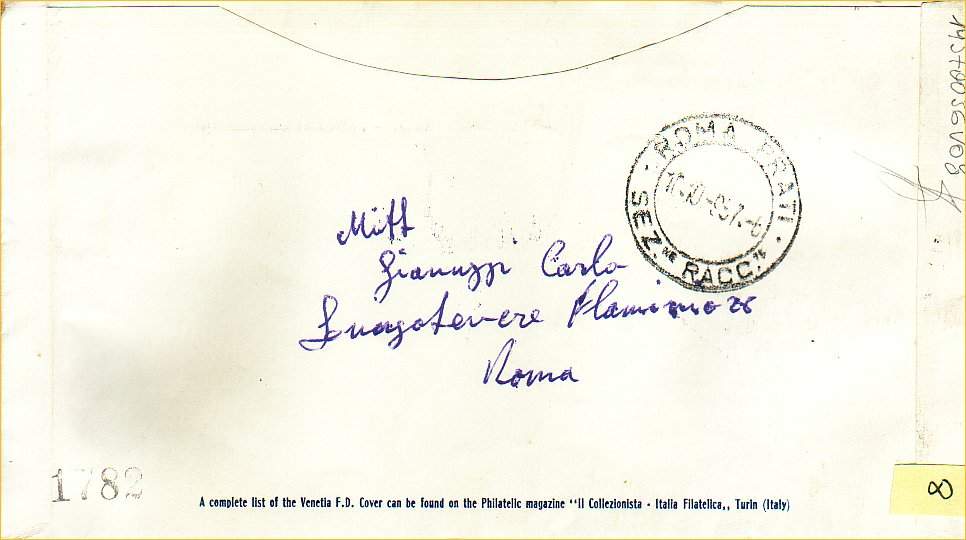 ROMA PRATI
SEZ.NE RACC.TE
Mitt
Gianuzzi Carlo
Lungotevere Flaminio 28
Roma
1782
A complete list of the Venetia F.D. Cover can be found on the Philatelic magazine "Il Collezionista - Italia Filatelica,, Turin (Italy)
8